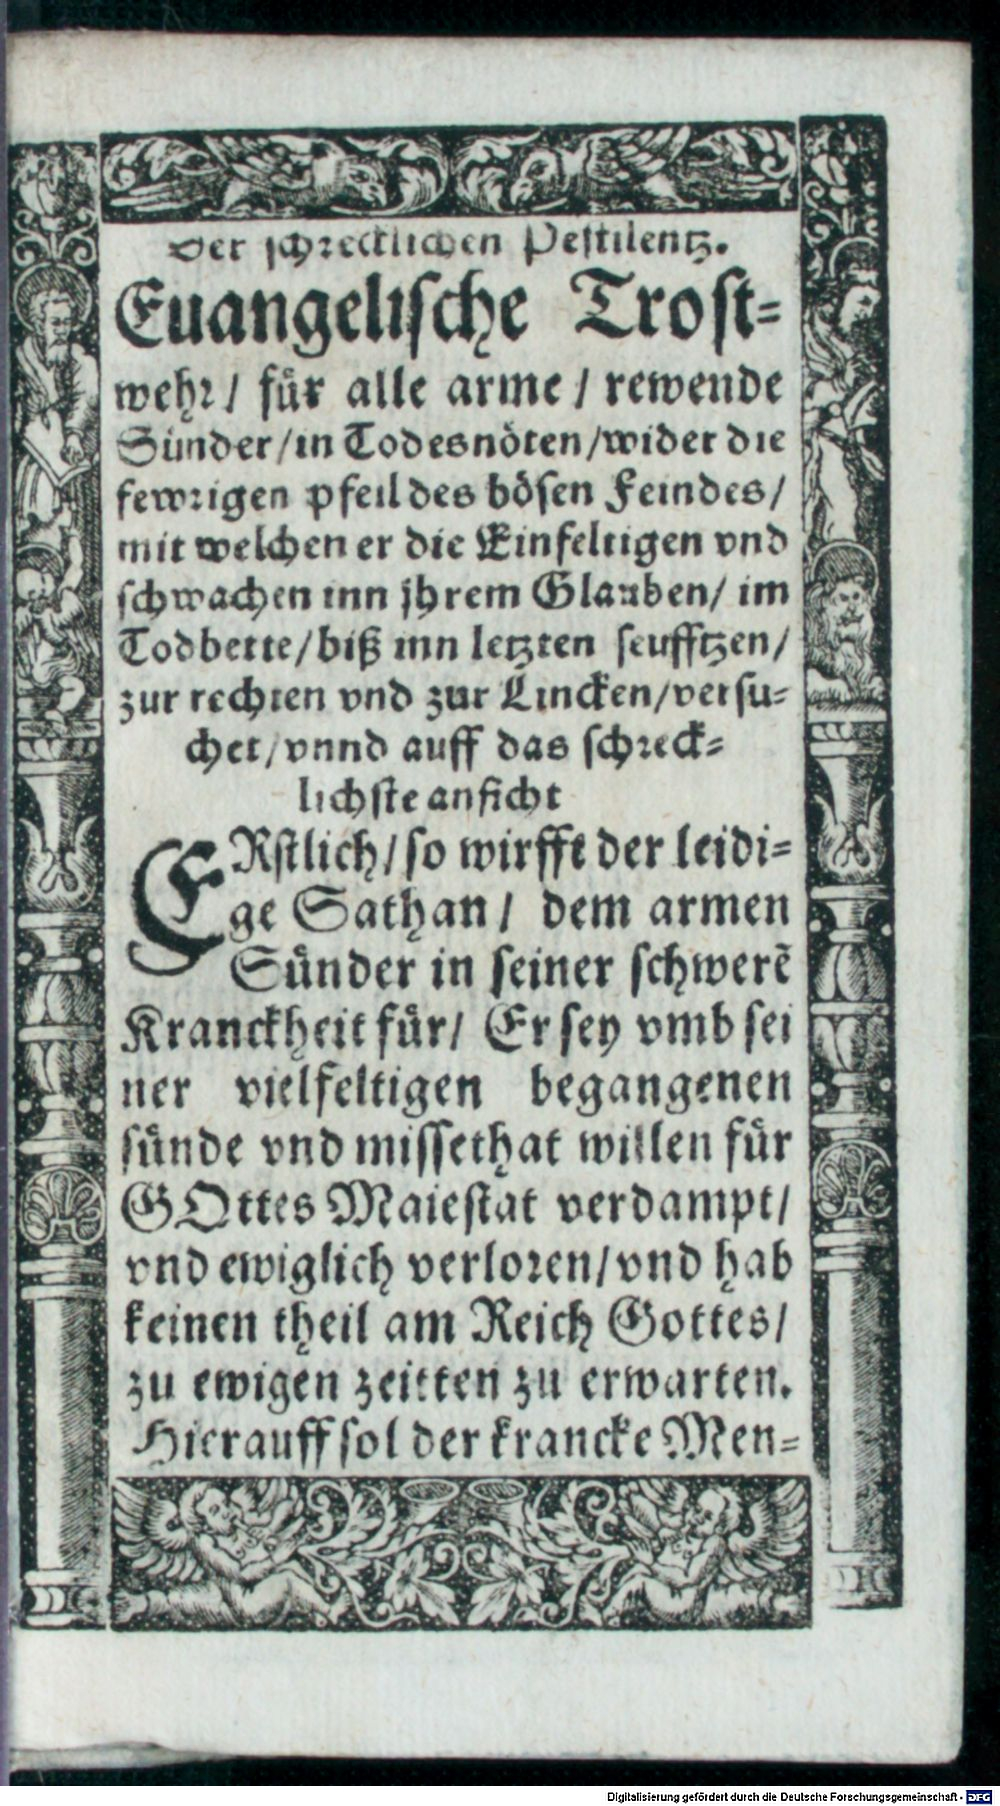 der schrecklichen Pestilentz.
Euangelische Trost-
wehr/ für alle arme/ rewende
Sünder/in Todesnöten/wider die
fewrigen pfeil des bösen Feindes/
mit welchen er die Einfeltigen vnd
schwachen inn jhrem Glauben/ im
Todbette/biß inn letzten seufftzen/
zur rechten vnd zur Lincken/versu-
chet/vnnd auff das schreck-
lichste anficht
ERstlich/so wirfft der leidi-
ge Sathan/ dem armen
Sünder in seiner schwerẽ
Kranckheit für/ Er sey vmb sei
ner vielfeltigen begangenen
sünde vnd missethat willen für
GOttes Maiestat verdampt/
vnd ewiglich verloren/vnd hab
keinen theil am Reich Gottes/
zu ewigen zeitten zu erwarten.
Hierauff sol der krancke Men-
Digitalisierung gefördert durch die Deutsche Forschungsgemeinschaft - DFG